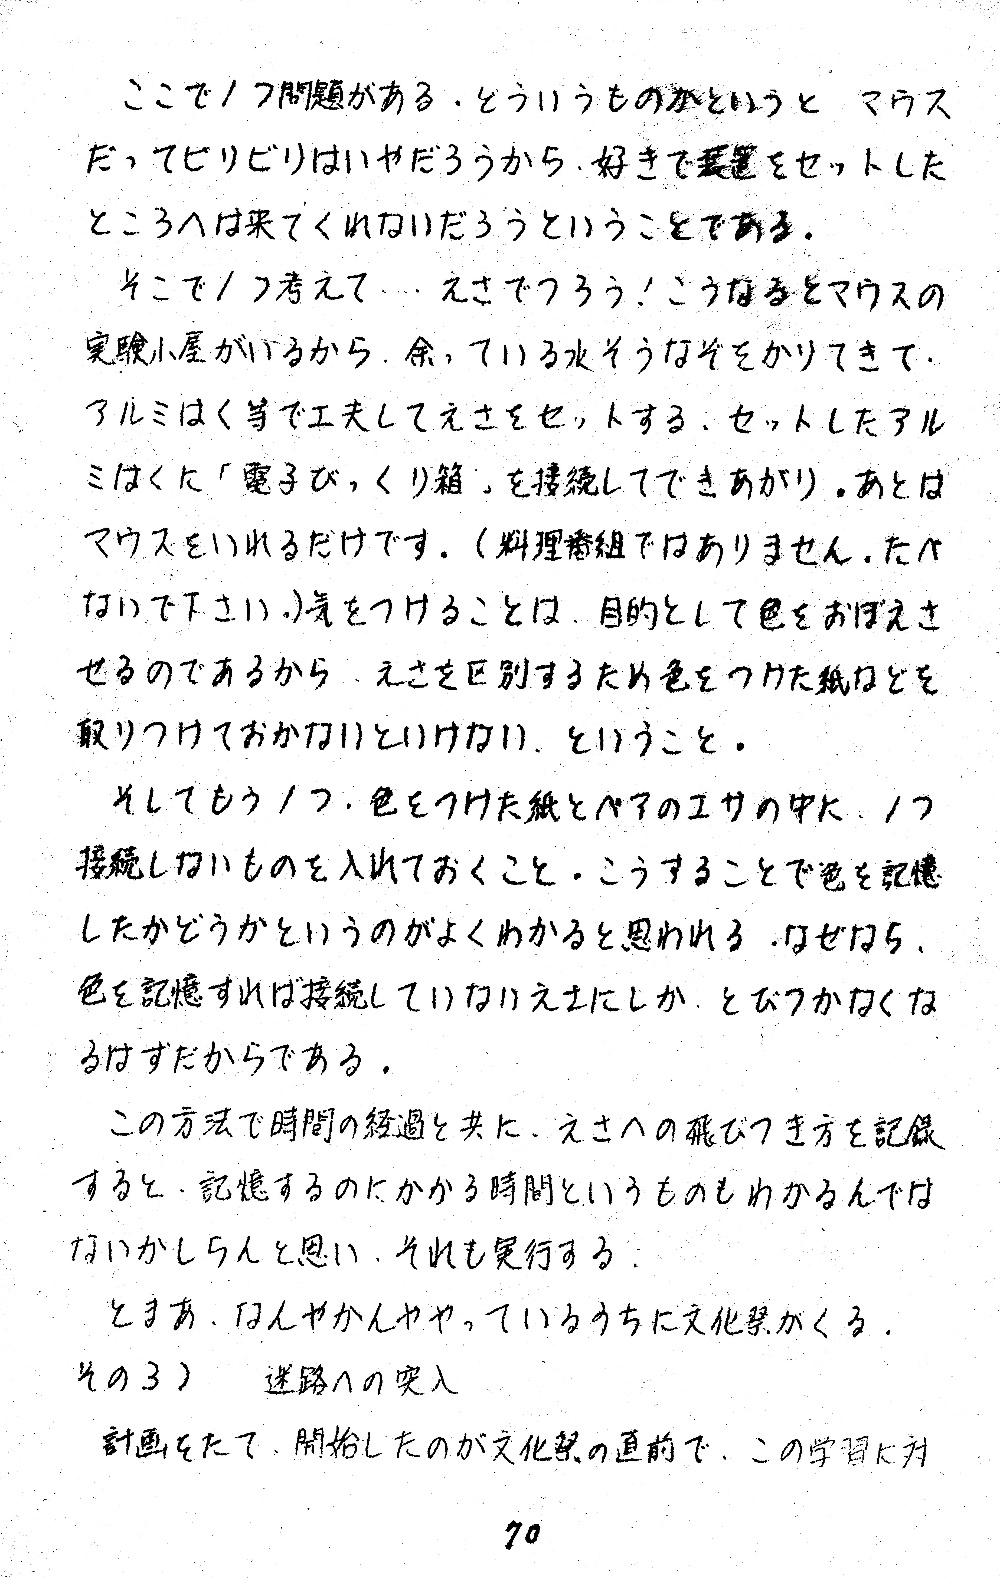 ここで1つ問題がある．どういうものかというと　マウス
だってビリビリはいやだろうから、好きで装置をセットした
ところへは来てくれないだろうということである．
そこで1つ考えて… えさでつろう！こうなるとマウスの
実験小屋がいるから、余っている水そうなぞをかりてきて、
アルミはく等で工夫してえさをセットする、セットしたアル
ミはくに「電子びっくり箱」を接続してできあがり．あとは
マウスをいれるだけです．（料理番組ではありません．たべ
ないで下さい．）気をつけることは、目的として色をおぼえさ
せるのであるから、えさを区別するため色をつけた紙などを
取りつけておかないといけない、ということ．
そしてもう1つ、色をつけた紙とペアのエサの中に、1つ
接続しないものを入れておくこと．こうすることで色を記憶
したかどうかというのがよくわかると思われる．なぜなら、
色を記憶すれば接続していないえさにしか、とびつかなくな
るはずだからである．
この方法で時間の経過と共に、えさへの飛びつき方を記録
すると、記憶するのにかかる時間というものもわかるんでは
ないかしらんと思い、それも実行する．
とまあ、なんやかんややっているうちに文化祭がくる．
その3）　迷路への突入
計画をたて、開始したのが文化祭の直前で、この学習に対
70